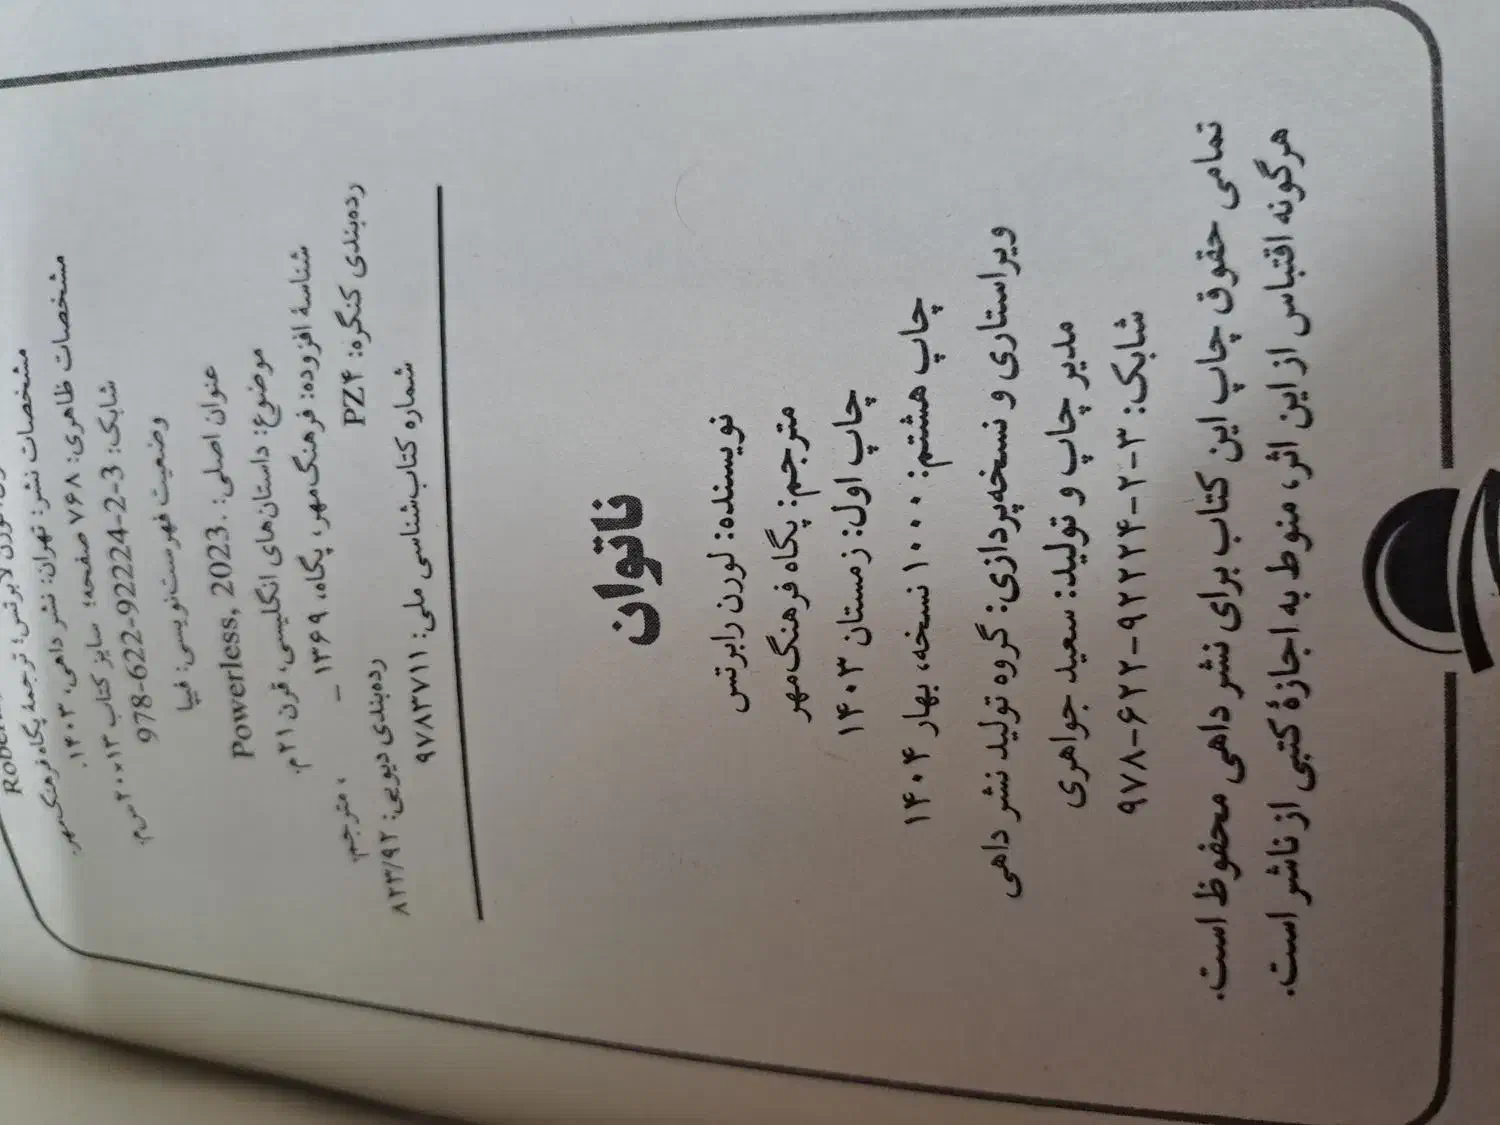 مشخصات نشر: تهران: نشر داهی، ۱۴۰۳.
مشخصات ظاهری: ۷۶۸ صفحه؛ سایز کتاب ۱۳×۲۰ س‌م.
شابک: 978-622-92224-2-3
وضعیت فهرست‌نویسی: فیپا
عنوان اصلی: Powerless, 2023.
موضوع: داستان‌های انگلیسی، قرن ۲۱ م.
شناسهٔ افزوده: فرهنگ‌مهر، پگاه، ۱۳۶۹ - ، مترجم.
رده‌بندی کنگره: PZ۴ رده‌بندی دیویی: ۸۲۳/۹۲
شماره کتاب‌شناسی ملی: ۹۷۸۳۷۱۱
ناتوان
نویسنده: لورن رابرتس
مترجم: پگاه فرهنگ‌مهر
چاپ اول: زمستان ۱۴۰۳
چاپ هشتم: ۱۰۰۰ نسخه، بهار ۱۴۰۴
ویراستاری و نسخه‌پردازی: گروه تولید نشر داهی
مدیر چاپ و تولید: سعید جواهری
شابک: ۳-۲-۹۲۲۲۴-۶۲۲-۹۷۸
تمامی حقوق چاپ این کتاب برای نشر داهی محفوظ است.
هرگونه اقتباس از این اثر، منوط به اجازهٔ کتبی از ناشر است.